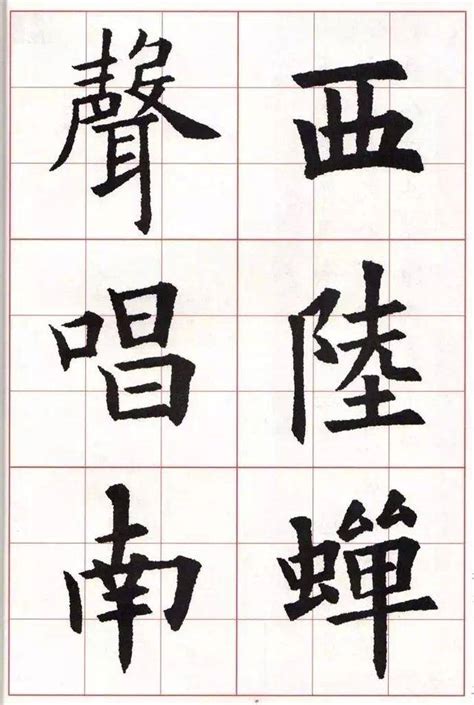 西陸蟬
聲唱南